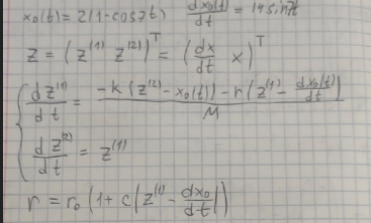 x₀(t) = 2(1-cos7t) dx₀(t)/dt = 14 sin7t
z = (z⁽¹⁾ z⁽²⁾)ᵀ = (dx/dt x)ᵀ
{ dz⁽¹⁾/dt = (-k(z⁽²⁾ - x₀(t)) - r(z⁽¹⁾ - dx₀(t)/dt))/M
dz⁽²⁾/dt = z⁽¹⁾
r = r₀(1 + c|z⁽¹⁾ - dx₀/dt|)